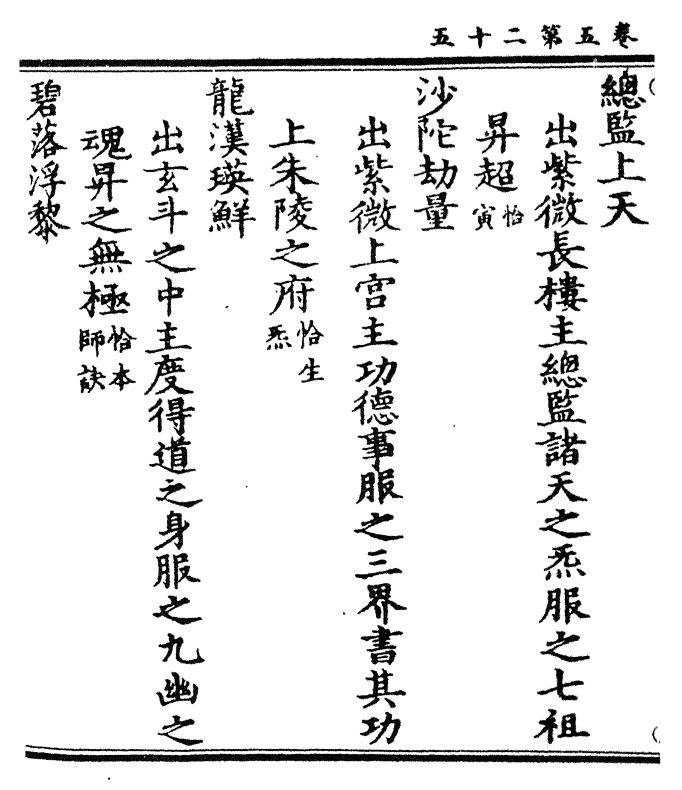 卷五第二十五
總監上天
出紫微長樓主總監諸天之炁服之七祖
昇超怡寅
沙陀劫量
出紫微上宮主功德事服之三界書其功
上朱陵之府恰生炁
龍漢瑛鮮
出玄斗之中主度得道之身服之九幽之
魂昇之無極恰本師訣
碧落浮黎